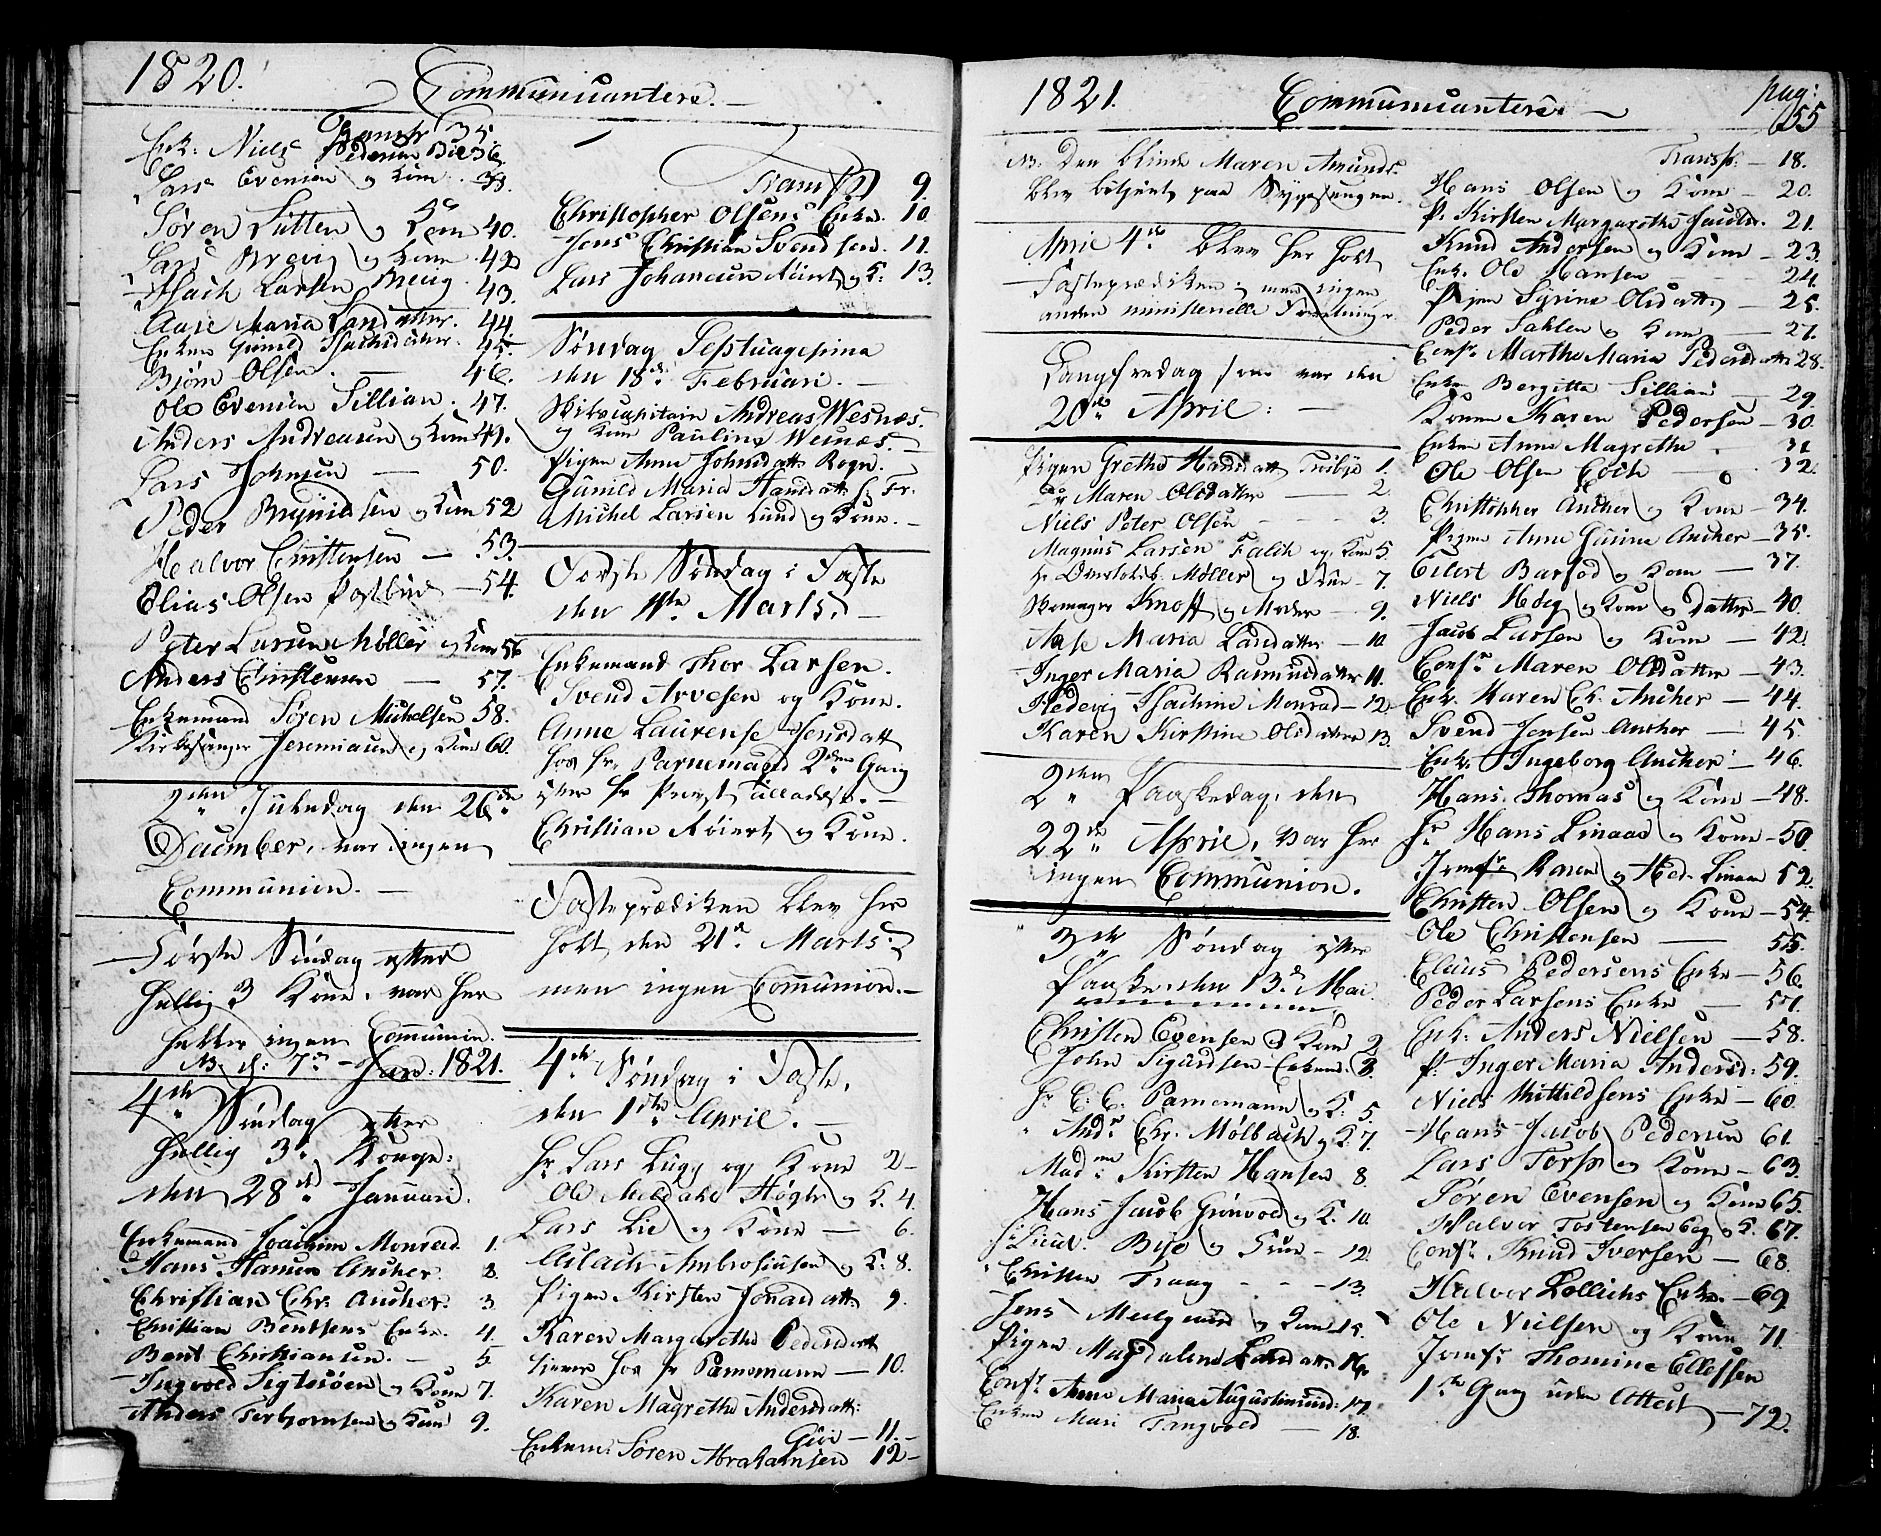 1820.
Communicantere.
Transp: 35
Enk: Niels Pedersen Bie 36.
Lars Evensen og Kone 38.
Søren Sitten og Kone 40.
Lars Brevig og Kone 42
Isach Larsen Brevig 43.
Aase Maria Larsdatter. 44.
Enken Gunild Isachsdatter. 45.
Bjørn Olsen. — 46.
Ole Evensen Sillian. 47.
Anders Andreasen og Kone 49.
Lars Johnsen — 50.
Peder Brynildsen og Kone 52
Halvor Christensen — 53.
Elias Olsen Postbud — 54.
Peter Larsen Møller og Kone 56
Anders Christensen — 57.
Enkemand Søren Michelsen 58.
Kirkesanger Jeremiasen og Kone 60.
2den Juledag den 26de
December, var ingen
Communion. —
Første Søndag efter
Hellig 3 Kone, var her
heller ingen Communion.
NB. d: 7de Jan: 1821.
4de Søndag efter
Hellig 3 Konge:
den 28de Januari.
Enkemand Joachim Monrad. 1.
Hans Hansen Ancher. 2.
Christian Chr. Ancher. 3.
Christian Bentsens Enke. 4.
Bent Christiansen. — 5.
Ingvold Sigtesøen og Kone 7.
Anders Terbjørnsen og Kone 9.
Transp 9.
Christopher Olsens Enke. 10.
Jens Christian Svendsen. 11.
Lars Johansen Røiert og K: 13.
Søndag Septuagesima
den 18de Februari. —
Skibscapitain Andreas Wesnæs.
og Kone Pauline Wesnæs. —
Pigen Anne Johnsdatt: Rogn. —
Gunild Maria Hansdatt: f Fr.
Michel Larsen Lund og Kone. —
Første Søndag i Faste
den 11te Marts. —
Enkemand Thor Larsen.
Svend Arvesen og Kone.
Anne Laurense Jensdatt
hos hr. Parnemand 2den Gang
efter hr Provst Tilladelse. —
Christian Røiert og Kone.
Fasteprædiken blev her
holt den 21de Marts.
men ingen Communion. —
4de Søndag i Faste,
den 1ste April. —
Hr. Lars Lugg og Kone 2 —
Ole Høgh og K. 4.
Lars Lie og Kone — 6.
Aslach Ambrosiusen og K: 8.
Pigen Kirsten Jonasdatt: 9.
Karen Margarethe Pedersdatt
tiener hos hr Parnemann — 10.
Karen Magrethe Andersdatt:
Gusi — 11. —
Enkem: Søren Abrahamsen 12 —
1821.
Communicantere.
pag:
55
NB. Den blinde Maren Amunds.
blev betjent paa Sygesengen.
April 4de blev her holt
Fasteprædiken; men ingen
anden ministerielle Forretninger.
Langfredag som var den
20de April: —
Pigen Grethe Hansdatt: 1.
Maren Olsdatter — 2.
Niels Peter Olsen - - - 3.
Magnus Larsen Falck og Kone 5.
Hr Møller og Frue — 7.
Skomager Knoff og Moder — 9.
Aase Maria Larsdatter — 10
Inger Maria Rasmusdatter 11.
Hedevig Isachine Monrad — 12
Karen Kirstine Olsdatter 13.
2den Paaskedag, den
22de April, var her
ingen Communion.
3de Søndag efter
Paaske, den 13de Mai.
Christen Evensen & Kone 2
John Sigurdsen Enkem. 3.
Hr C. C. Parnemann og K: 5.
And: Chr. Mølbach og K. 7.
Madme Kirsten Hansen 8.
Hans Jacob Grønvod og K. 10.
hr Lieut. Bye og Frue — 12.
Christen Traag - - — 13.
Jens Melgaard og Kone 15.
Pigen Magdalene Larsdatt: 16.
Conf: Anne Maria Augustinusd: 17.
Enken Mari Tangvold — 18
Transp: — 18.
Hans Olsen og Kone — 20.
P. Kirsten Margarethe Jacobsd. 21.
Knud Andersen og Kone — 23.
Enk. Ole Hansen — 24.
Pigen Syrine Olsdatt: — 25.
Peder Sahlen og Kone — 27.
Conf: Marthe Maria Pedersdatt: 28.
Enken Bergitte Sillian — 29
Konen Karen Pedersen — 30.
Enken Anne Magrethe - 31
Ole Olsen Coch — 32.
Christopher Ancher og Kone — 34.
Pigen Anne Gurine Ancher — 35.
Eilert Barfod og Kone — 37.
Niels Høeg og Kone og Datter — 40.
Jacob Larsen og Kone — 42.
Conf: Maren Olsdatter — 43.
Enk. Karen Ch. Ancher — 44.
Svend Jensen Ancher — 45.
Enk: Ingeborg Ancher — 46.
Hans Thomas og Kone — 48.
Hr. Hans Linaae og Kone — 50.
Jomfr Karen og Hed. Linaae 52.
Christen Olsen og Kone — 54
Ole Christensen — 55.
Claus Pedersens Enke — 56.
Peder Larsens Enke — 57.
Enk: Anders Nielsen — 58.
P: Inger Maria Andersd: 59.
Niels Mithildsens Enke — 60.
Hans Jacob Pedersen 61.
Lars Torp og Kone — 63.
Søren Evensen og Kone 65.
Halvor Tostensen og K. 67.
Conf: Knud Iversen — 68.
Halvor Kollichs Enke. — 69.
Ole Nielsen og Kone 71.
Jomfr Thomine Ellefsen
1ste Gang uden Attest — 72.